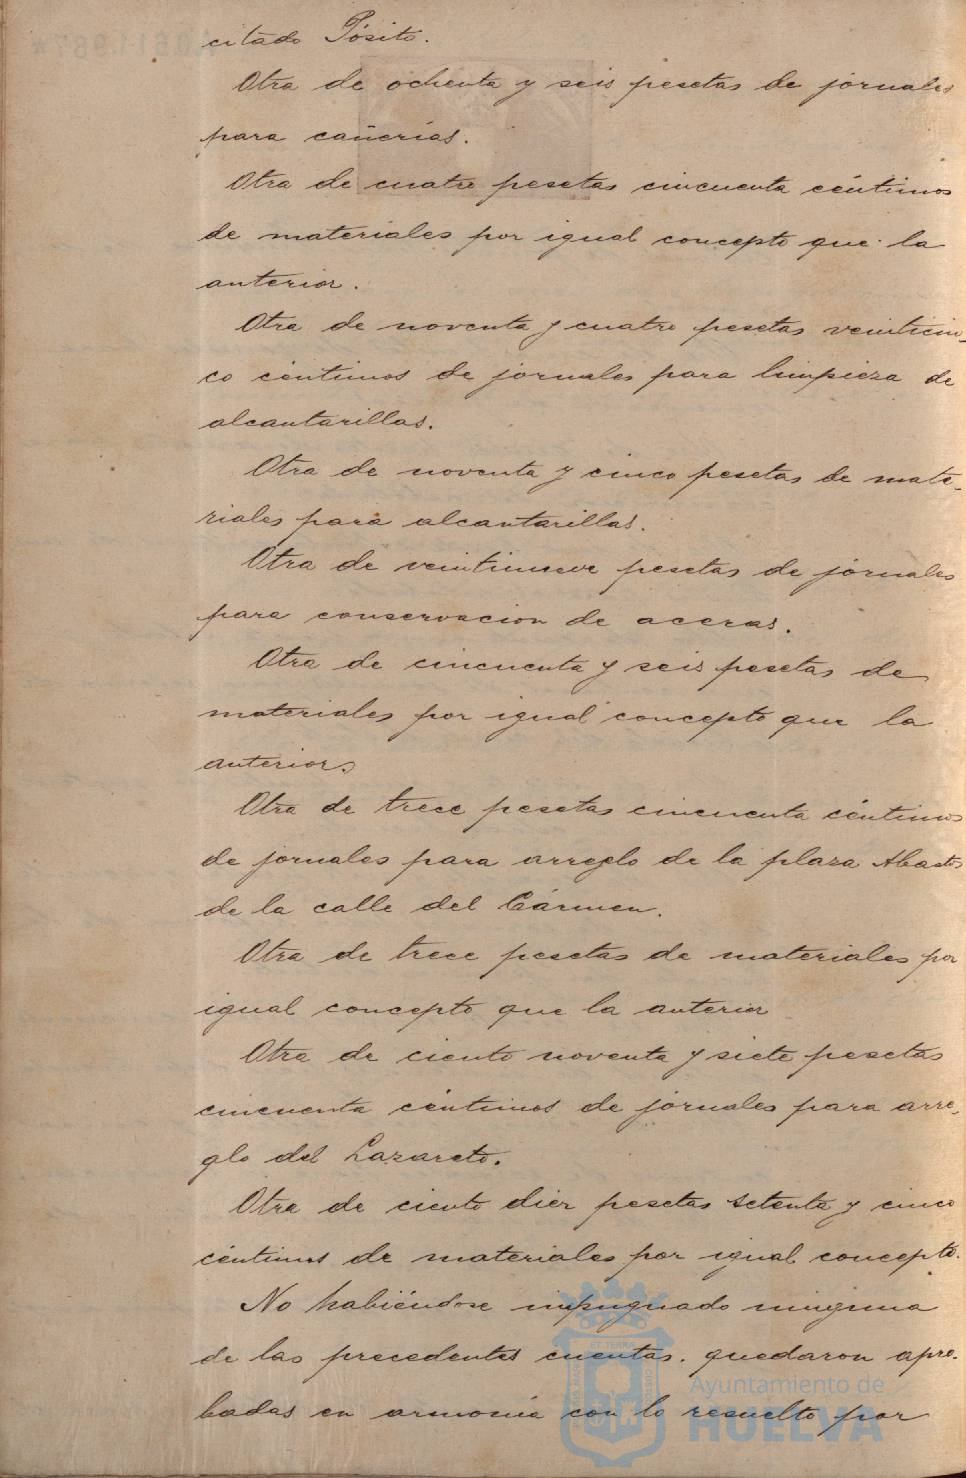 citado Pósito.
Otra de ochenta y seis pesetas de jornales
para cañerías.
Otra de cuatro pesetas cincuenta céntimos
de materiales por igual concepto que la
anterior.
Otra de noventa y cuatro pesetas veinticin-
co céntimos de jornales para limpieza de
alcantarillas.
Otra de noventa y cinco pesetas de mate-
riales para alcantarillas.
Otra de veintinueve pesetas de jornales
para conservacion de aceras.
Otra de cincuenta y seis pesetas de
materiales por igual concepto que la
anterior.
Otra de trece pesetas cincuenta céntimos
de jornales para arreglo de la plaza Abastos
de la calle del Cármen.
Otra de trece pesetas de materiales por
igual concepto que la anterior
Otra de ciento noventa y siete pesetas
cincuenta céntimos de jornales para arre-
glo del Lazareto.
Otra de ciento diez pesetas setenta y cinco
céntimos de materiales por igual concepto.
No habiéndose impugnado ninguna
de las precedentes cuentas. quedaron apro-
badas en armonía con lo resuelto por
Ayuntamiento de
HUELVA